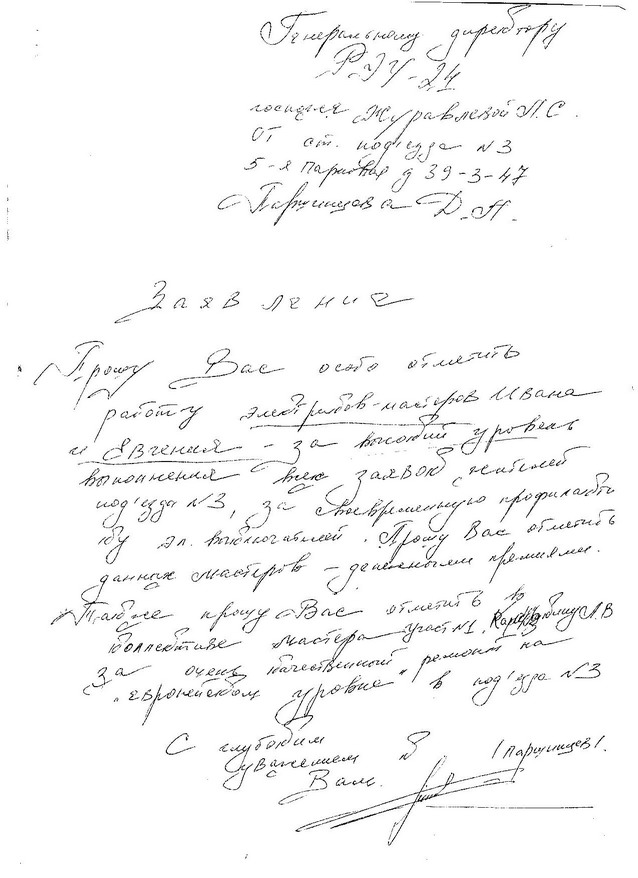 Генеральному директору
РЭУ-24
госпоже Журавлевой Л.С.
от ст. под'езда №3
5-я Парковая д 39-3-47
Паршинцева Д.Н.
Заявление
Прошу Вас особо отметить
работу электриков-мастеров Ивана
и Евгения - за высокий уровень
выполнения всех заявок жителей
под'езда №3, за своевременную профилакти
ку эл. выключателей. Прошу Вас отметить
данных мастеров - денежными премиями.
Также прошу Вас отметить в
коллективе мастера участ №1 Л.В
за очень качественный ремонт на
"европейском уровне" в под'езда №3
С глубоким
уважением к
Вам.
(Паршинцев).